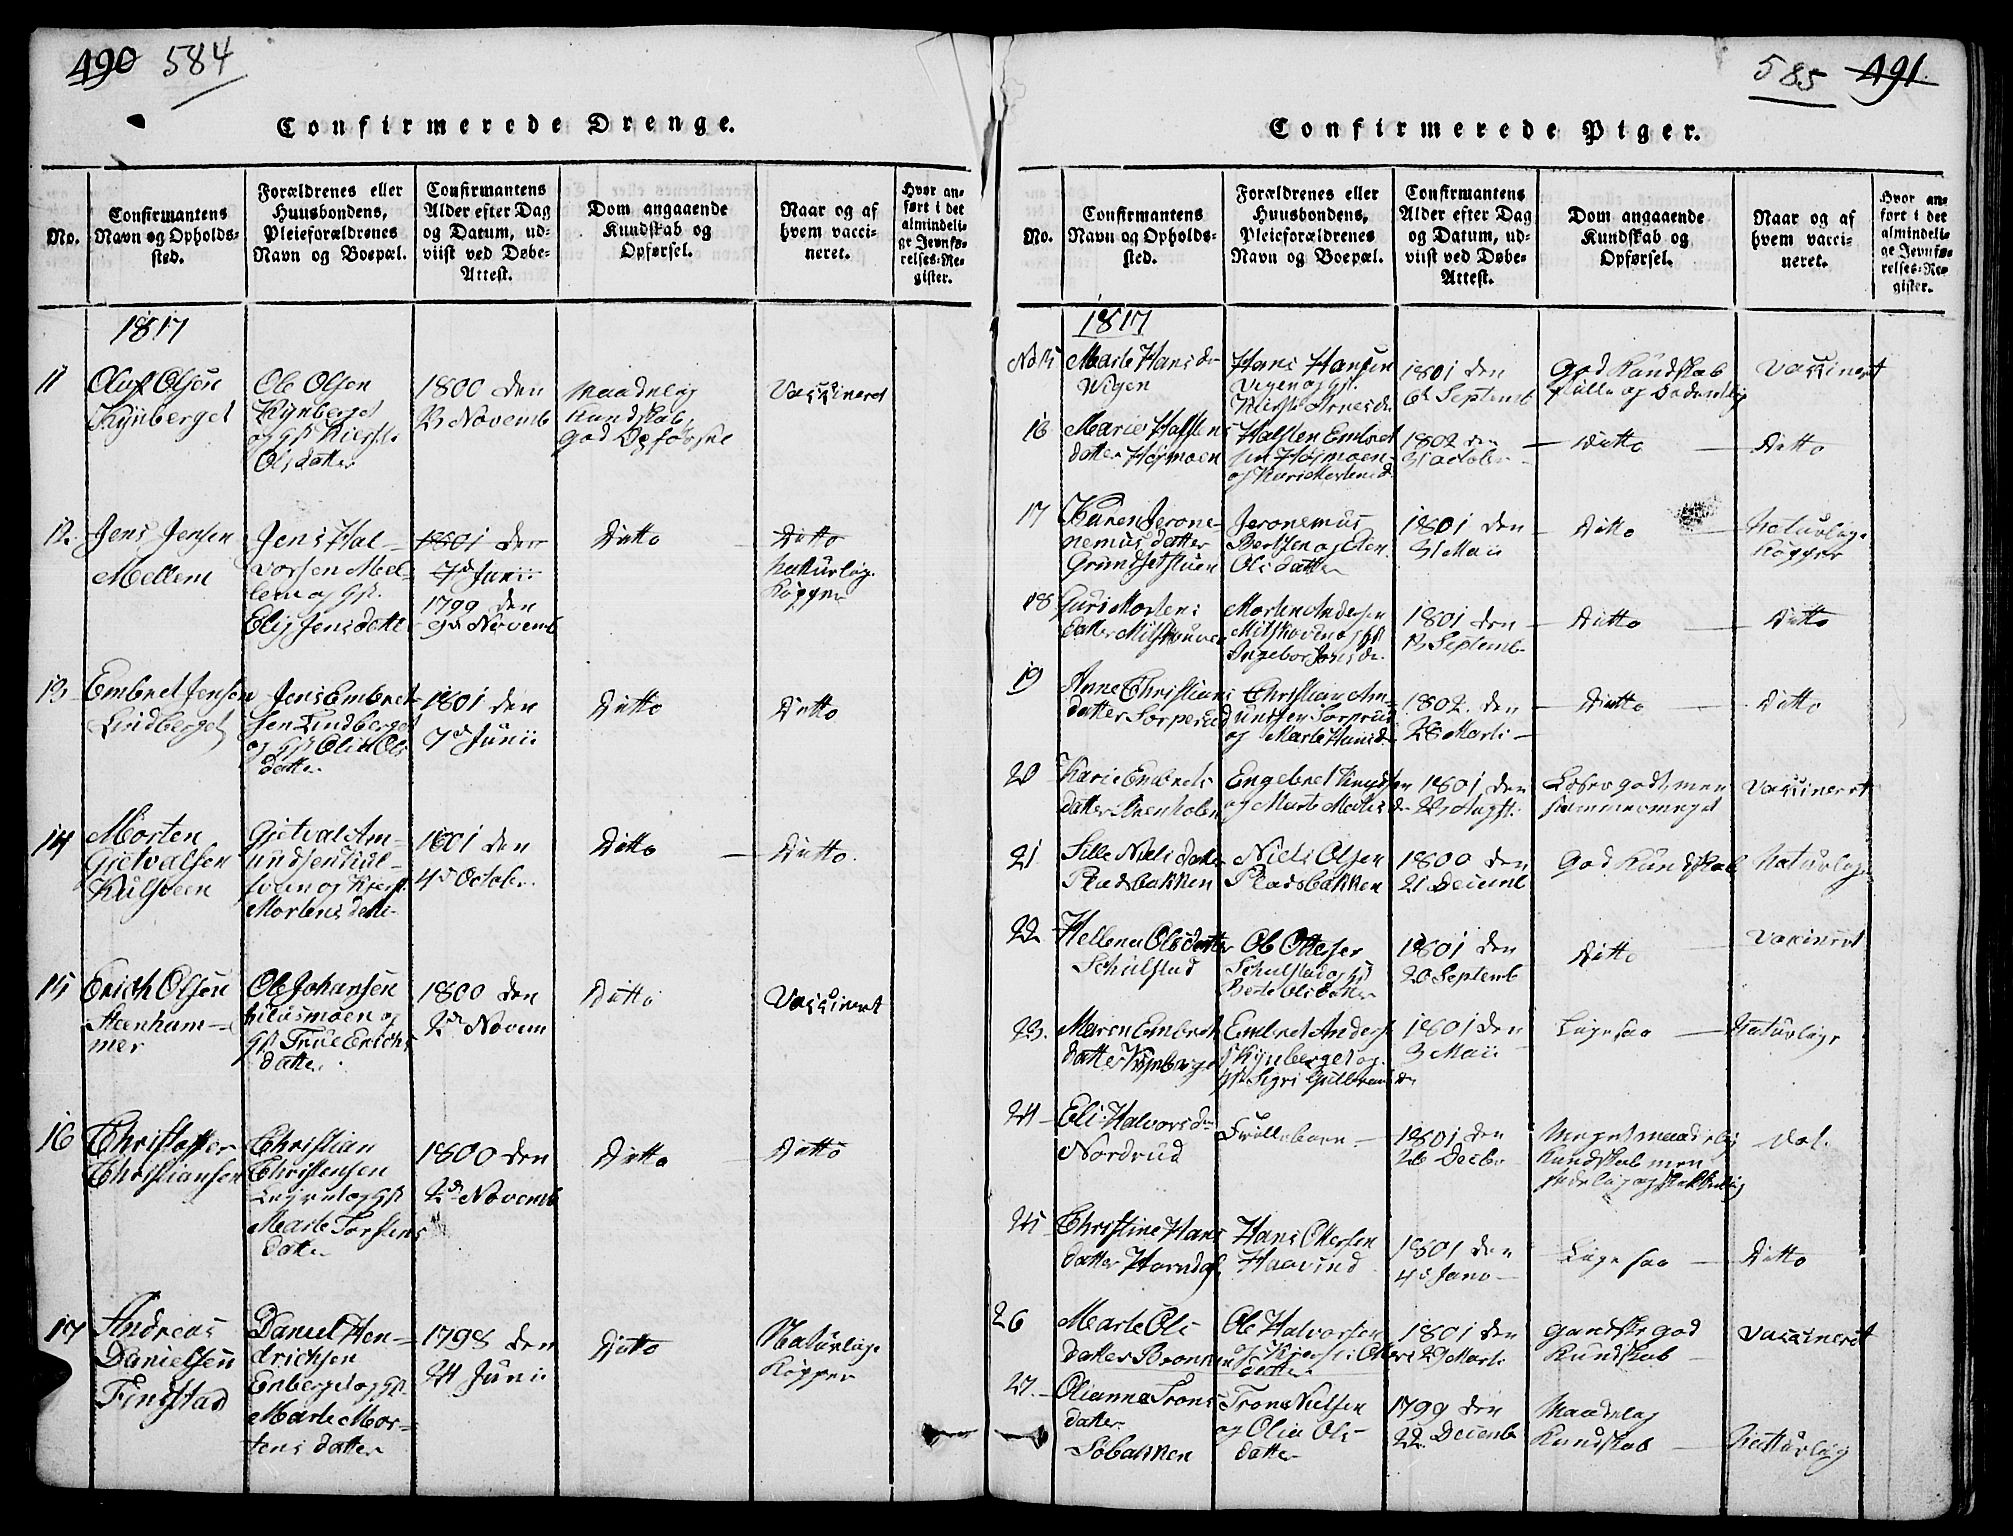 490 584
Confirmerede Drenge.
No.
Confirmantens
Navn og Opholds-
sted.
Forældrenes eller
Huusbondens,
Pleieforældrenes
Navn og Boepæl.
Confirmantens
Alder efter Dag
og Datum, ud-
viist ved Døbe-
Attest.
Dom angaaende
Kundskab og
Opførsel.
Naar og af
hvem vacci-
neret.
Hvor an-
ført i det
almindeli-
ge Jevnfø-
relses-Re-
gister.
1817
11
Oluf Olsen
Kynberget
Ole Olsen
Kynberget
og Hst Kierst.
Olsdatter
1800 den
13 Novemb
Maadelig
Kundskab
god Opførsel
Vaccineret
12.
Jens Jensen
Mellem
Jens Hal-
vorsen Mel-
lem og Hst.
Elig Jensdatt
1801 den
7d Junii
1799 den
9de Novemb
Ditto
Ditto
Naturlig.
Kopper
13
Embret Jensen
Lindberget
Jens Embret-
sen Lindberget
og Hst Olia Ols
datter
1801 den
7d Junii
Ditto
Ditto
14
Morten
Gjetvalsen
Kulsveen
Gjetval Am-
undsen Kul-
sveen og Kjerst.
Mortens datte.
1801 den
4d Octobr.
Ditto
Ditto.
15
Erich Olsen
Steenham-
mer
Ole Johansen
moen og
Hst True Erichs
datter
1800 den
2d Novem
Ditto
Vaccineret
16
Christoffer
Christiansen
Christian
Christensen
og Hst
Marte Torstens
datte
1800 den
2d Novemb
Ditto
Ditto
17
Andreas
Danielsen
Finstad
Daniel Hen-
drichsen
Enberget og Hst
Marte Mor-
tens datter
1798 den
24 Junii
Ditto
Naturlige
Kopper
585 491
Confirmerede Piger.
No.
Confirmantens
Navn og Opholds-
sted.
Forældrenes eller
Huusbondens,
Pleieforældrenes
Navn og Boepæl.
Confirmantens
Alder efter Dag
og Datum, ud-
viist ved Døbe-
Attest.
Dom angaaende
Kundskab og
Opførsel.
Naar og af
hvem vacci-
neret.
Hvor an-
ført i det
almindeli-
ge Jevnfø-
relses-Re-
gister.
1817
No 15
Marte Hansd.
Wigen
Hans Hansen
Vigen og Hst.
Kierst Arnesd.
1801 den
6d Septemb
God Kundskab
stille og Sædelig
Vaccineret
16
Marie Halstens
datter Højmoen
Halsten Embret
sen Højmoen
og Kari Mortensd.
1802 den
31 octobr
Ditto
Ditto
17
Karen Jerone-
nemus datter
Grundsetstuen
Jeronemus
Bertsen og Olea
Olsdatter
1801 den
31 Maii
Ditto
Naturlige
Kopper
18
Guri Mortens
datter Milskauven
Morten Andersen
Milskoven og Hst
Ingebor Jonsd.
1801 den
13 Septemb.
Ditto
Ditto
19
Anne Christians
datter Sorperud
Christian Am-
undsen Sorprud
og Marte Hansd.
1802 den
28 Marti
Ditto
Ditto
20
Karie Embrets
datter Stenholen
Engebret Knudsen
og Marte Mortensd.
1801 den
23 Augst.
Læser godt, men
Vaccineret
21
Sille Niels datter
Pladsbakken
Niels Olsen
Pladsbakken
1800 den
21 Decemb
God Kundskab
Naturlige
22
Hellene Olsdatter
Schulstad
Ole Ottesen
Schulstad og Hst
Berte Olsdatter
1801 den
20 Septemb
Ditto
Vaccineret
23.
Maren Embret
datter Kynberget
Embret Anders
Kynberget og
Hst Sigri Gulbrandsdr
1801 den
3 Maii
Ligesaa
Naturlige
24
Eli Halvorsd.
Nordrud
Frilleborn
1801 den
26 Decbr
Meget maadelig
Kundskab men
Vac.
25
Christine Hans
datter Horndal
Hans Ottersen
Haavind
1801 den
4d Janu
Ligesaa
Ditto
26
Marte Ols
datter Bronken
Ole Halvorsen
og Kjersti Otters
datter
1801 den
29 Marti
gandske god
Kundskab
Vaccineret
27.
Olianna Trons
datter
Sobakken
Trons Nielsen
og Olia Ols
datter
1799 den
22 Decemb
Maadelig
Kundskab
Naturlig